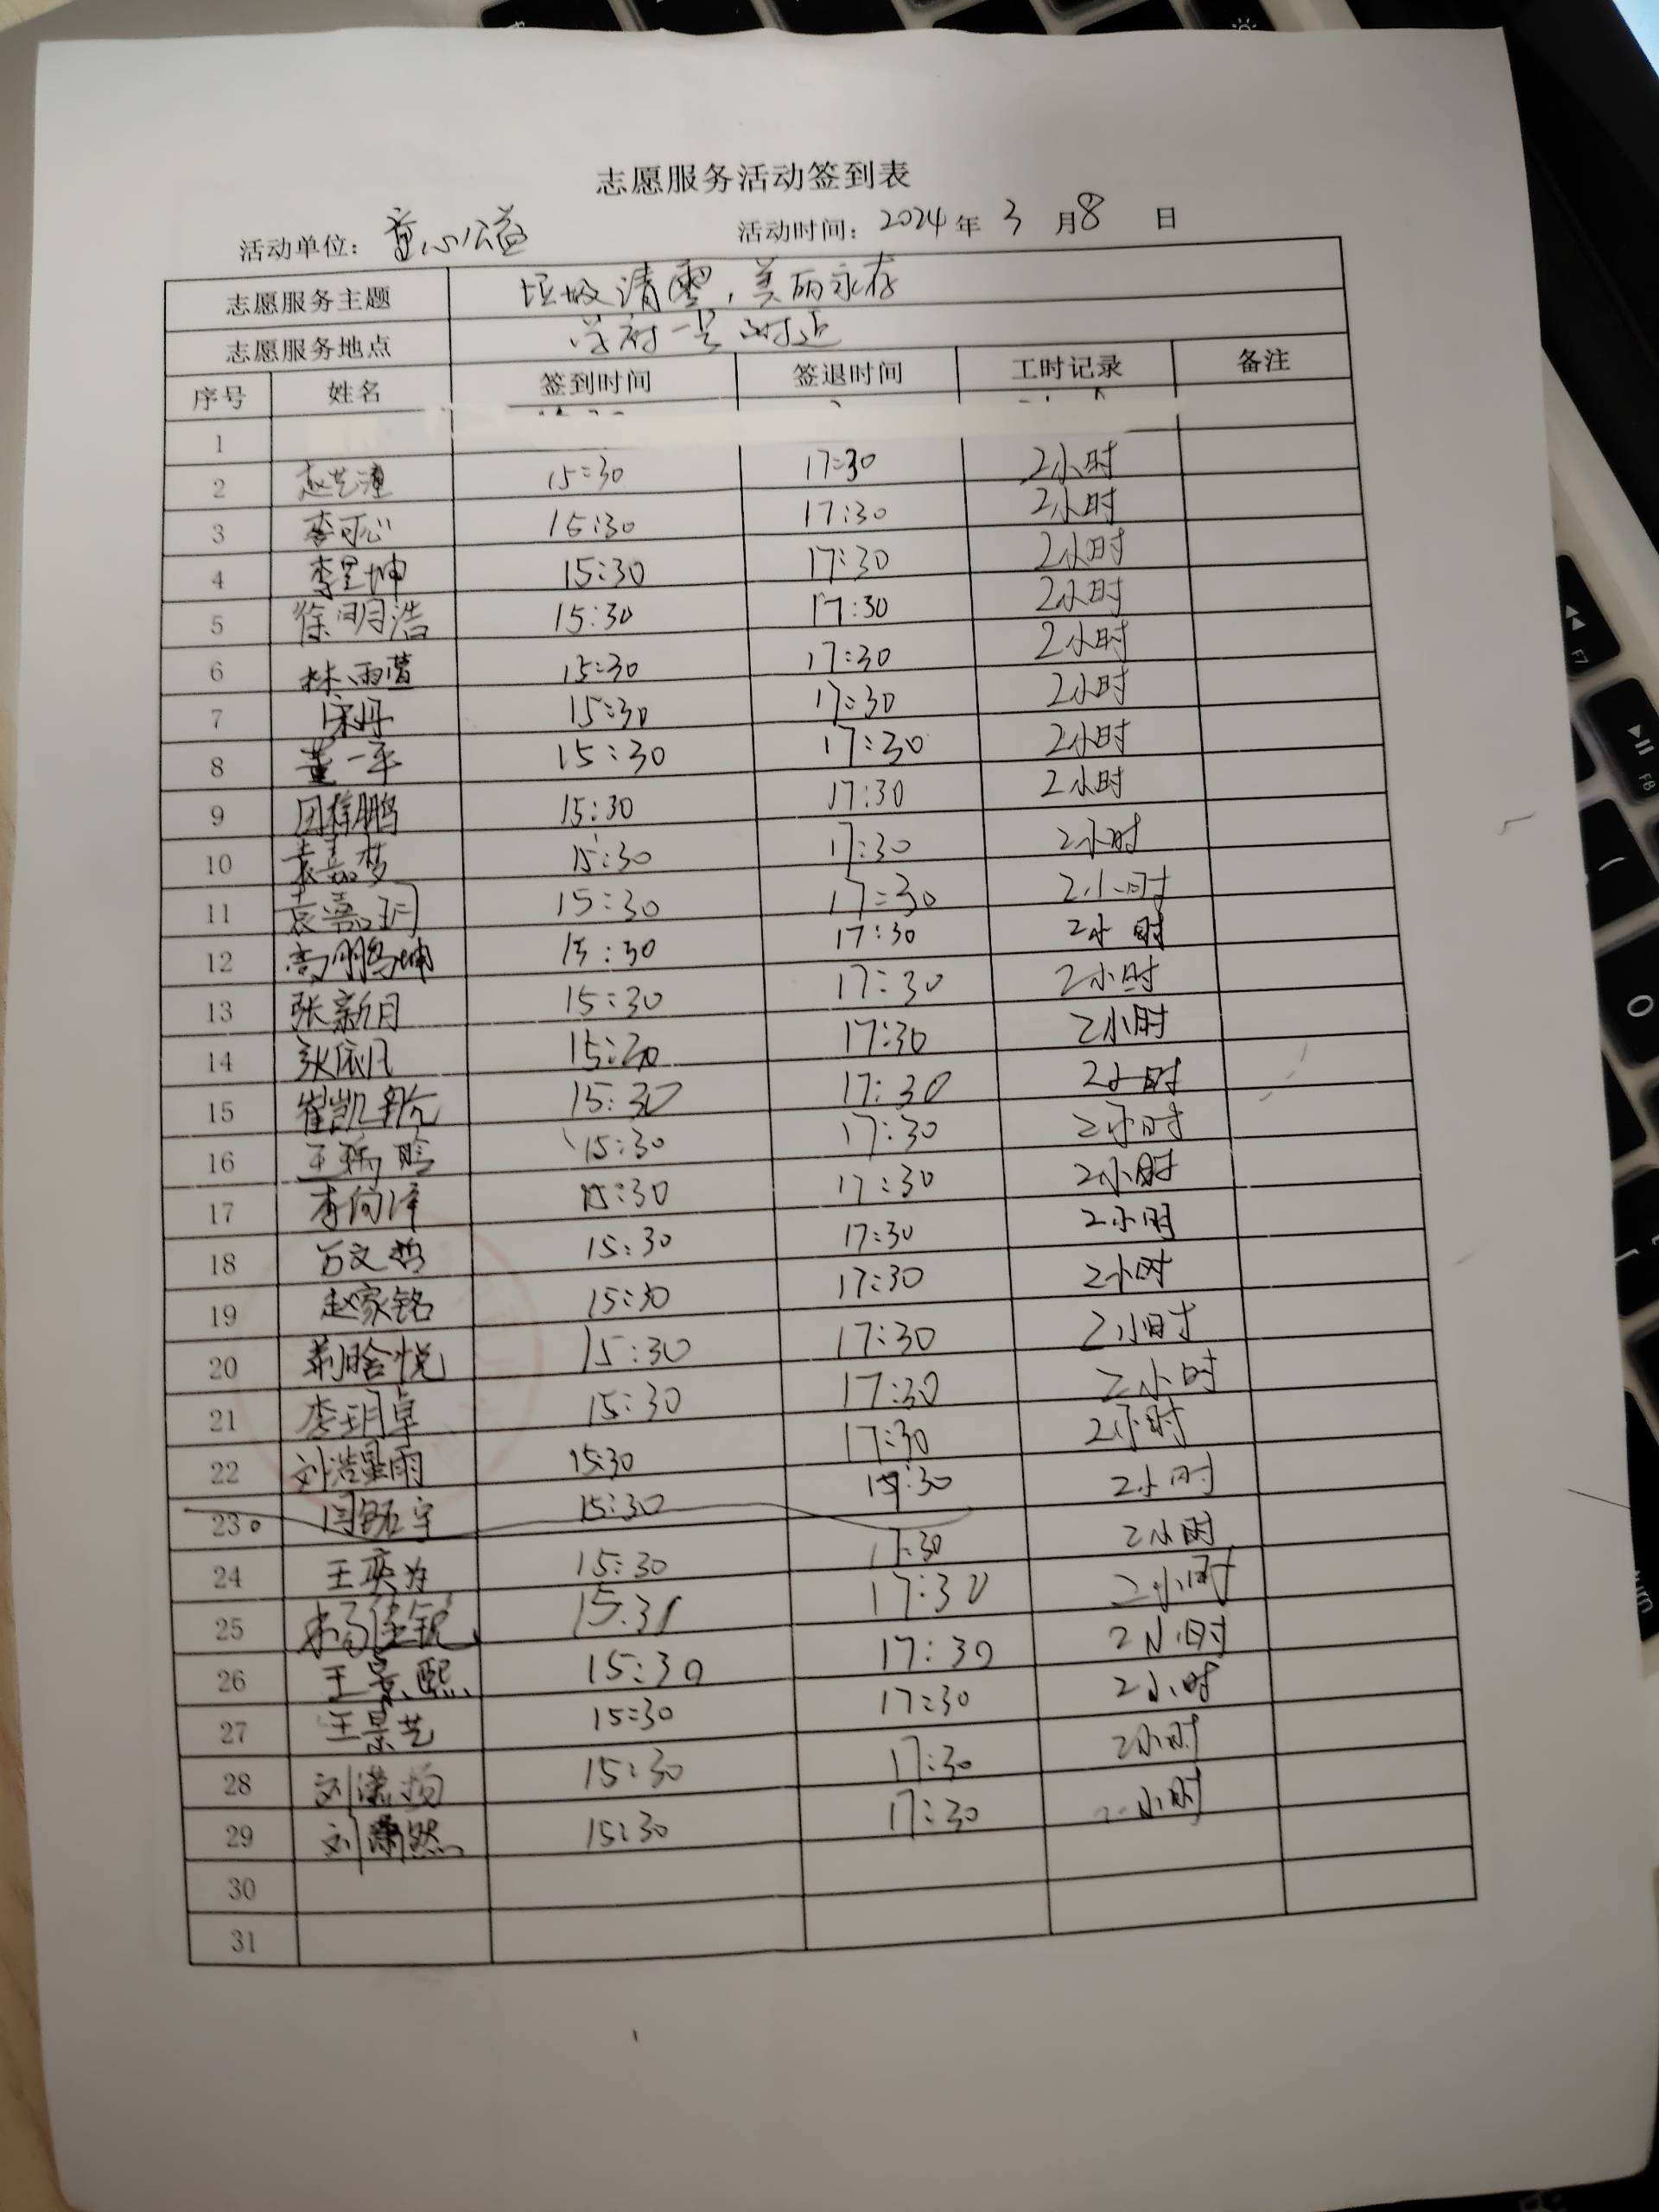 志愿服务活动签到表
活动单位：童心公益 活动时间：2024年3月8日
志愿服务主题 垃圾清零，美丽永存
志愿服务地点 学府一号附近
序号 姓名 签到时间 签退时间 工时记录 备注
1
2 赵艺潼 15:30 17:30 2小时
3 李可心 15:30 17:30 2小时
4 李昱坤 15:30 17:30 2小时
5 徐明浩 15:30 17:30 2小时
6 林雨萱 15:30 17:30 2小时
7 15:30 17:30 2小时
8 董一平 15:30 17:30 2小时
9 15:30 17:30 2小时
10 袁嘉梦 15:30 17:30 2小时
11 袁嘉玥 15:30 17:30 2小时
12 高鹏坤 15:30 17:30 2小时
13 张新月 15:30 17:30 2小时
14 张依凡 15:30 17:30 2小时
15 15:30 17:30 2小时
16 15:30 17:30 2小时
17 李向泽 15:30 17:30 2小时
18 万文哲 15:30 17:30 2小时
19 赵家铭 15:30 17:30 2小时
20 15:30 17:30 2小时
21 李玥卓 15:30 17:30 2小时
22 刘浩星雨 15:30 17:30 2小时
23 15:30 2小时
24 王奕为 15:30 17:30 2小时
25 17:30 2小时
26 王景熙 15:30 17:30 2小时
27 王景艺 15:30 17:30 2小时
28 15:30 17:30 2小时
29 15:30 17:30 小时
30
31